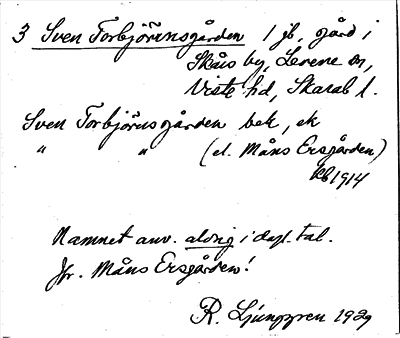 3 Sven Torbjörnsgården 1 jb. gård i
Skårs by, Levene sn,
Viste hd, Skarab l.
Sven Torbjörnsgården bek, ek
" " (el. Måns Ersgården)
Kb 1914
Namnet anv. aldrig i dagl. tal.
Jfr. Måns Ersgården!
R. Ljunggren 1929